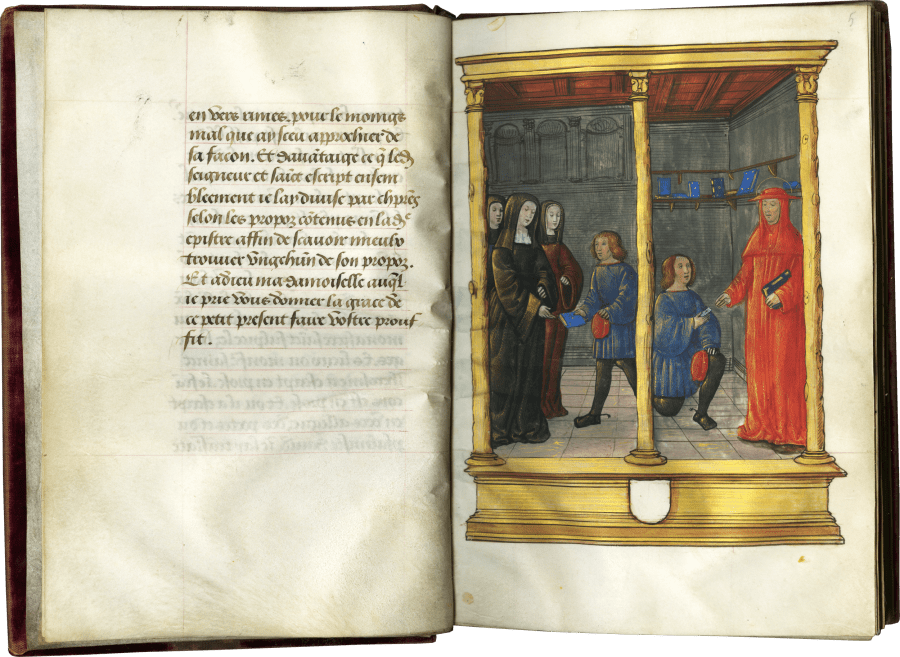 en vers rimes. pour le moings
mal que ay sceu approchier de
sa facon. Et davātaige ce q̄ led̄
seigneur et saīct escript ensem
blement ie lay divise par chp̄res
selon les propoz cōtenus en lad̄e
epistre affin de scavoir mieulx
trouver ungchūn de son propoz.
Et adieu ma damoiselle auq̄l
ie prie vous donner la grace de
ce petit present faire vostre prouf
fit.
5